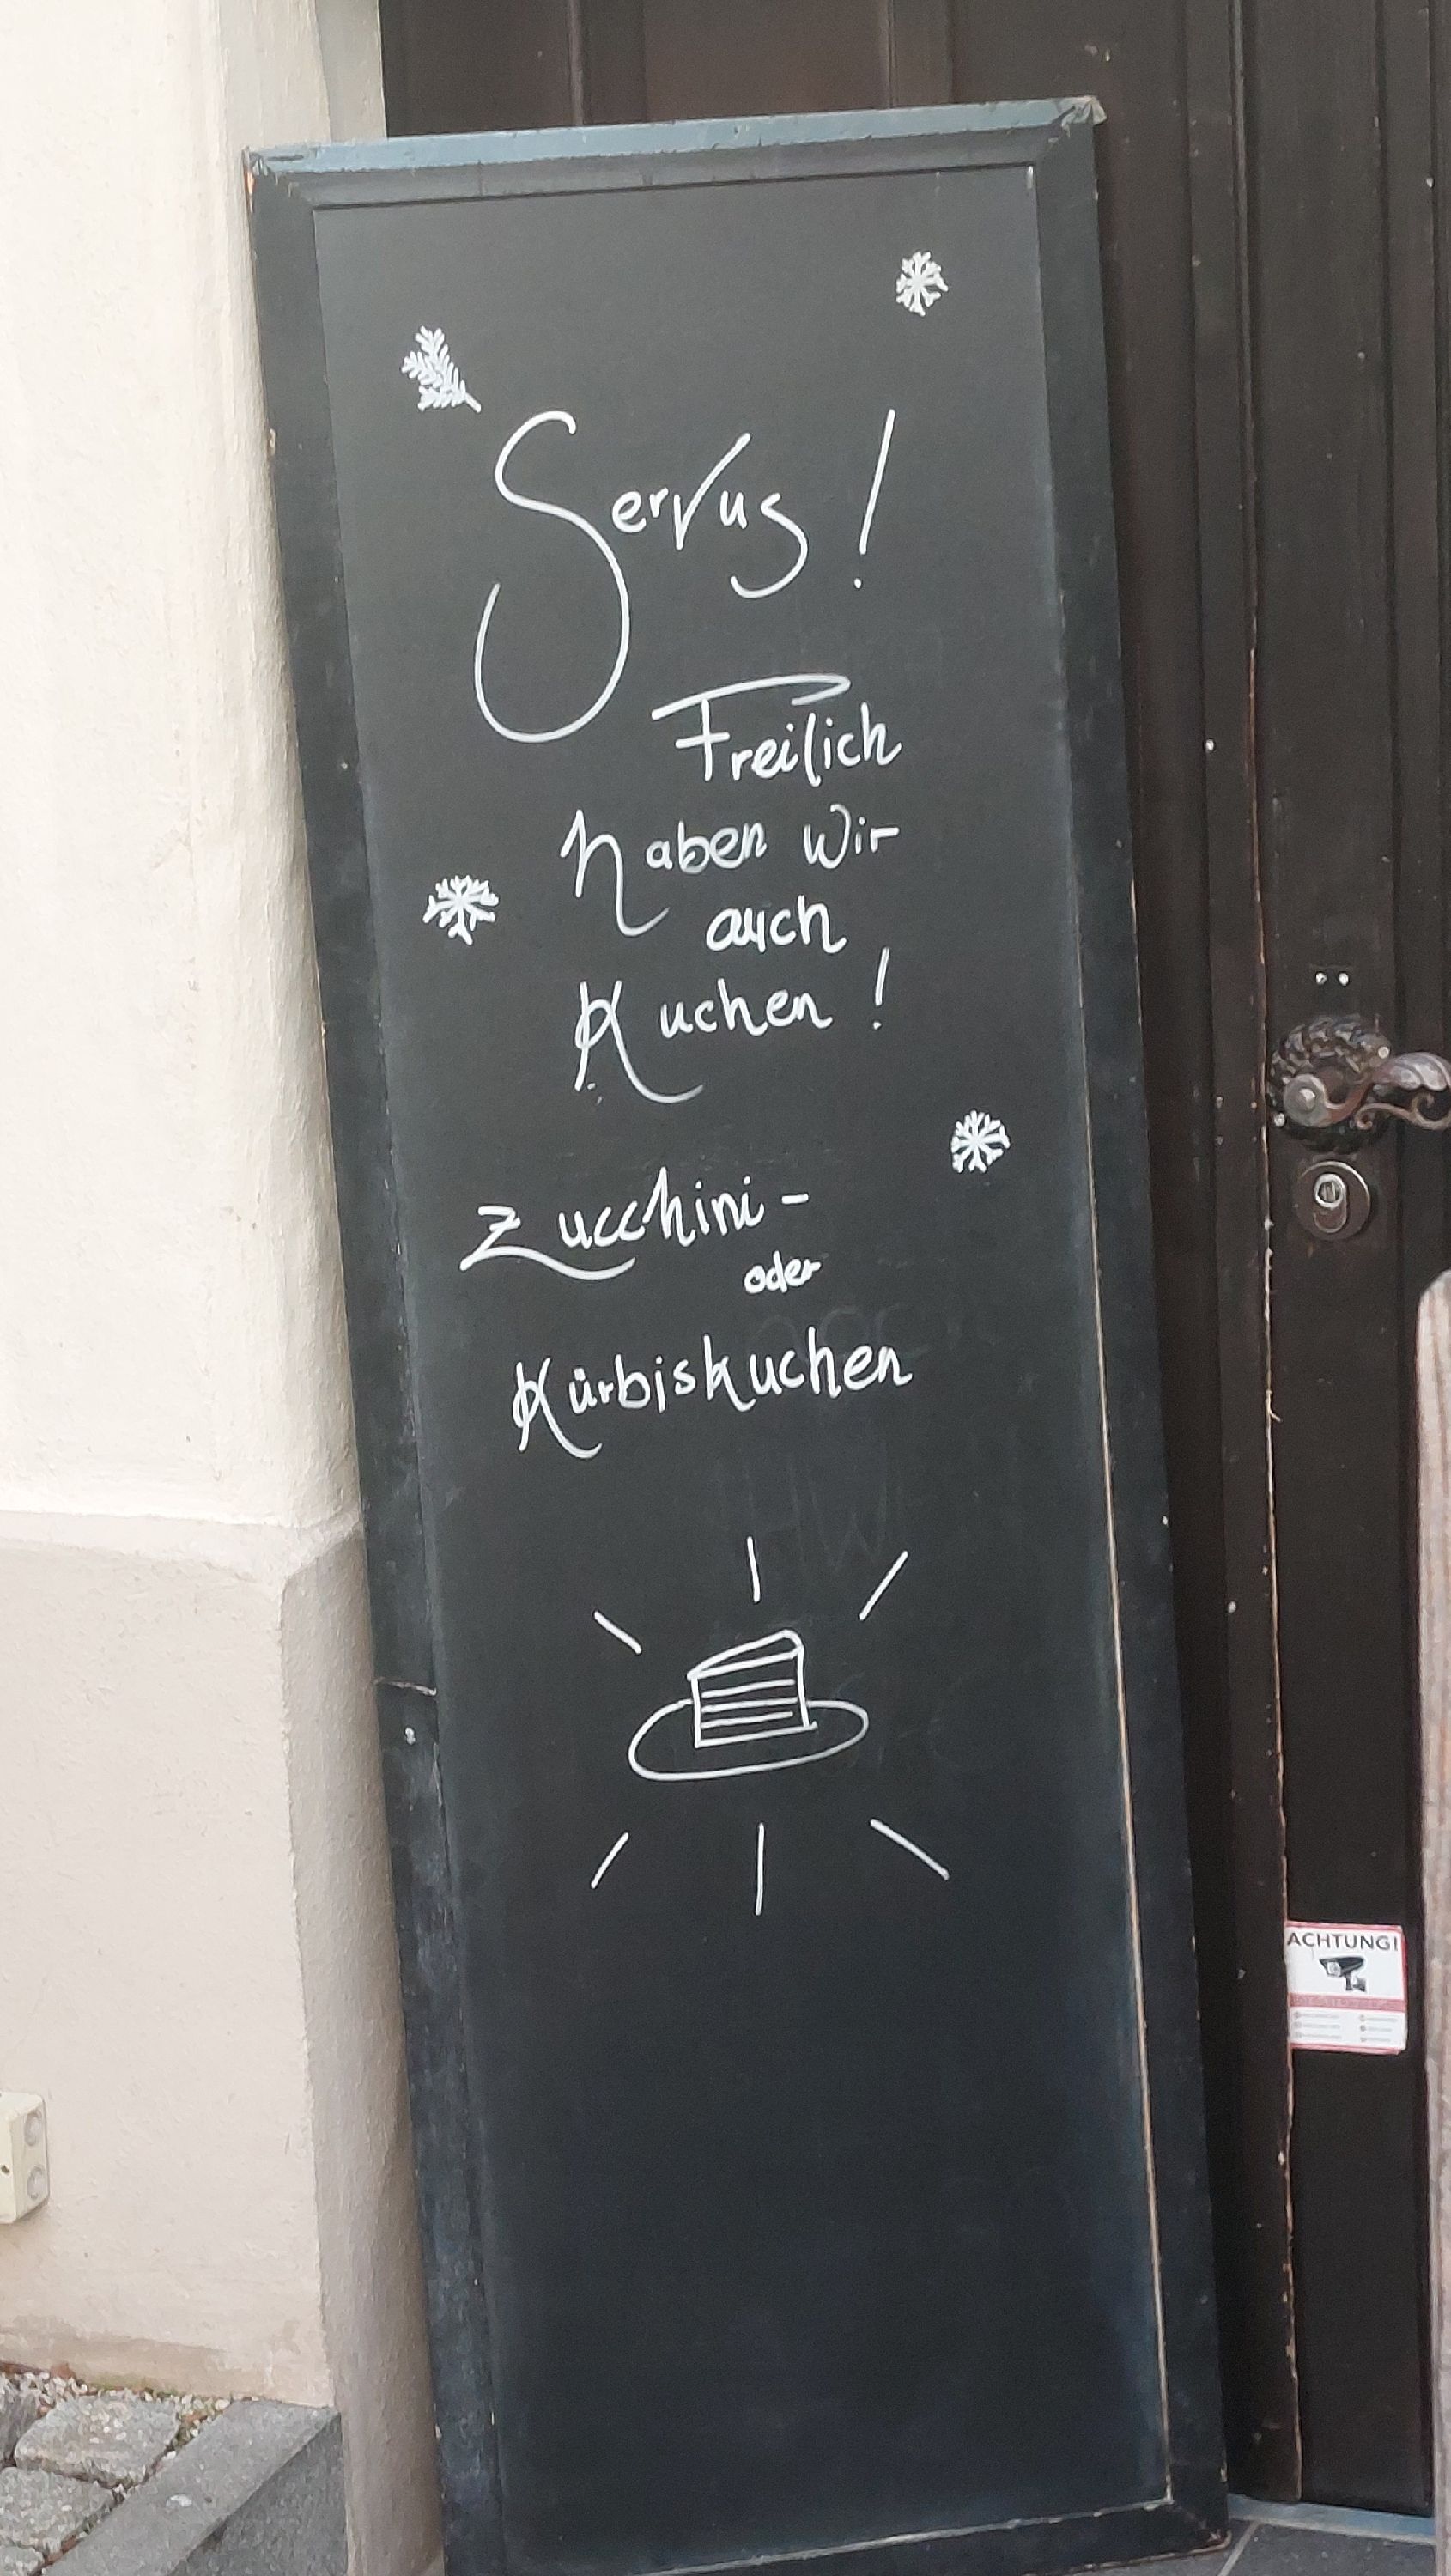 Servus!
Freilich
haben wir
auch
Kuchen!
Zucchini-
oder
Kürbiskuchen
ACHTUNG!